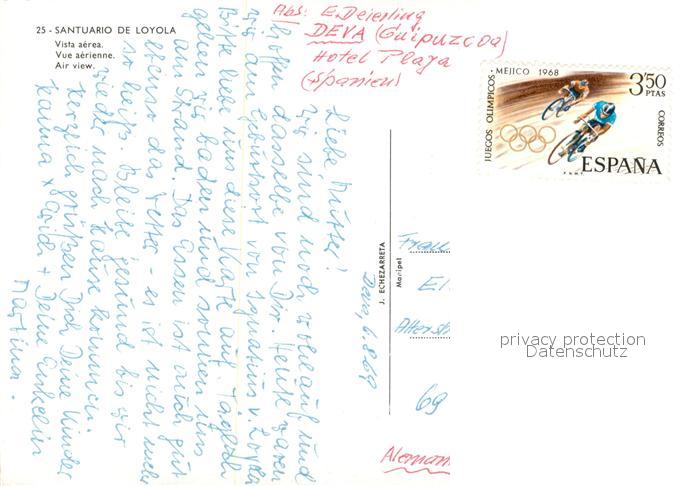 25 - SANTUARIO DE LOYOLA
Vista aérea.
Vue aérienne.
Air view.
Abs: E. Deierling
DEVA (Guipuzcoa)
Hotel Playa
(Spanien)
JUEGOS OLIMPICOS - MEJICO 1968
3'50
PTAS
CORREOS
ESPAÑA
F.N.M.T.
Deva, 6.8.69
Liebe Mutter!
Wir sind noch wohlauf und
hoffen dasselbe von Dir. Heute waren
wir am Geburtsort von Ignatius v. Loyola
Bitte hebe uns diese Karte auf. Täglich
gehen wir baden und sonnen uns
am Strand. Das Essen ist auch gut
ebenso das Wetter - es ist nicht mehr
so heiß. Bleibe gesund bis wir
wieder nach Hause kommen.
Herzlich grüßen Dich Deine Kinder
Hanna + + Deine Enkelin
Martina.
J. ECHEZARRETA
Maripel
Frau
El
Alters
69
Aleman
privacy protection
Datenschutz